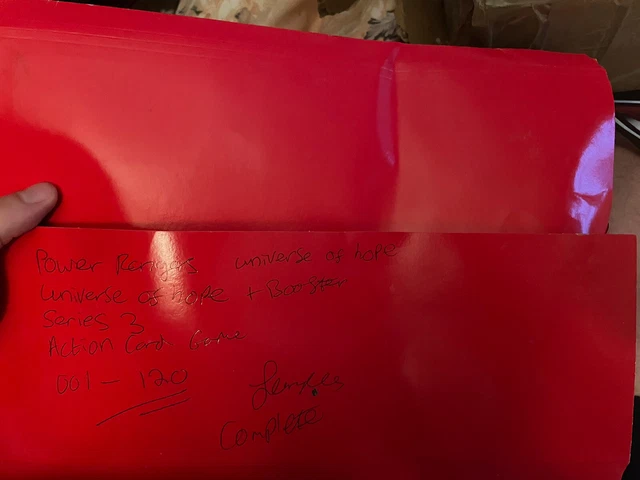 Power Rangers universe of hope
universe of hope + Booster
Series 3
Action Card Game
001 - 120
Complete